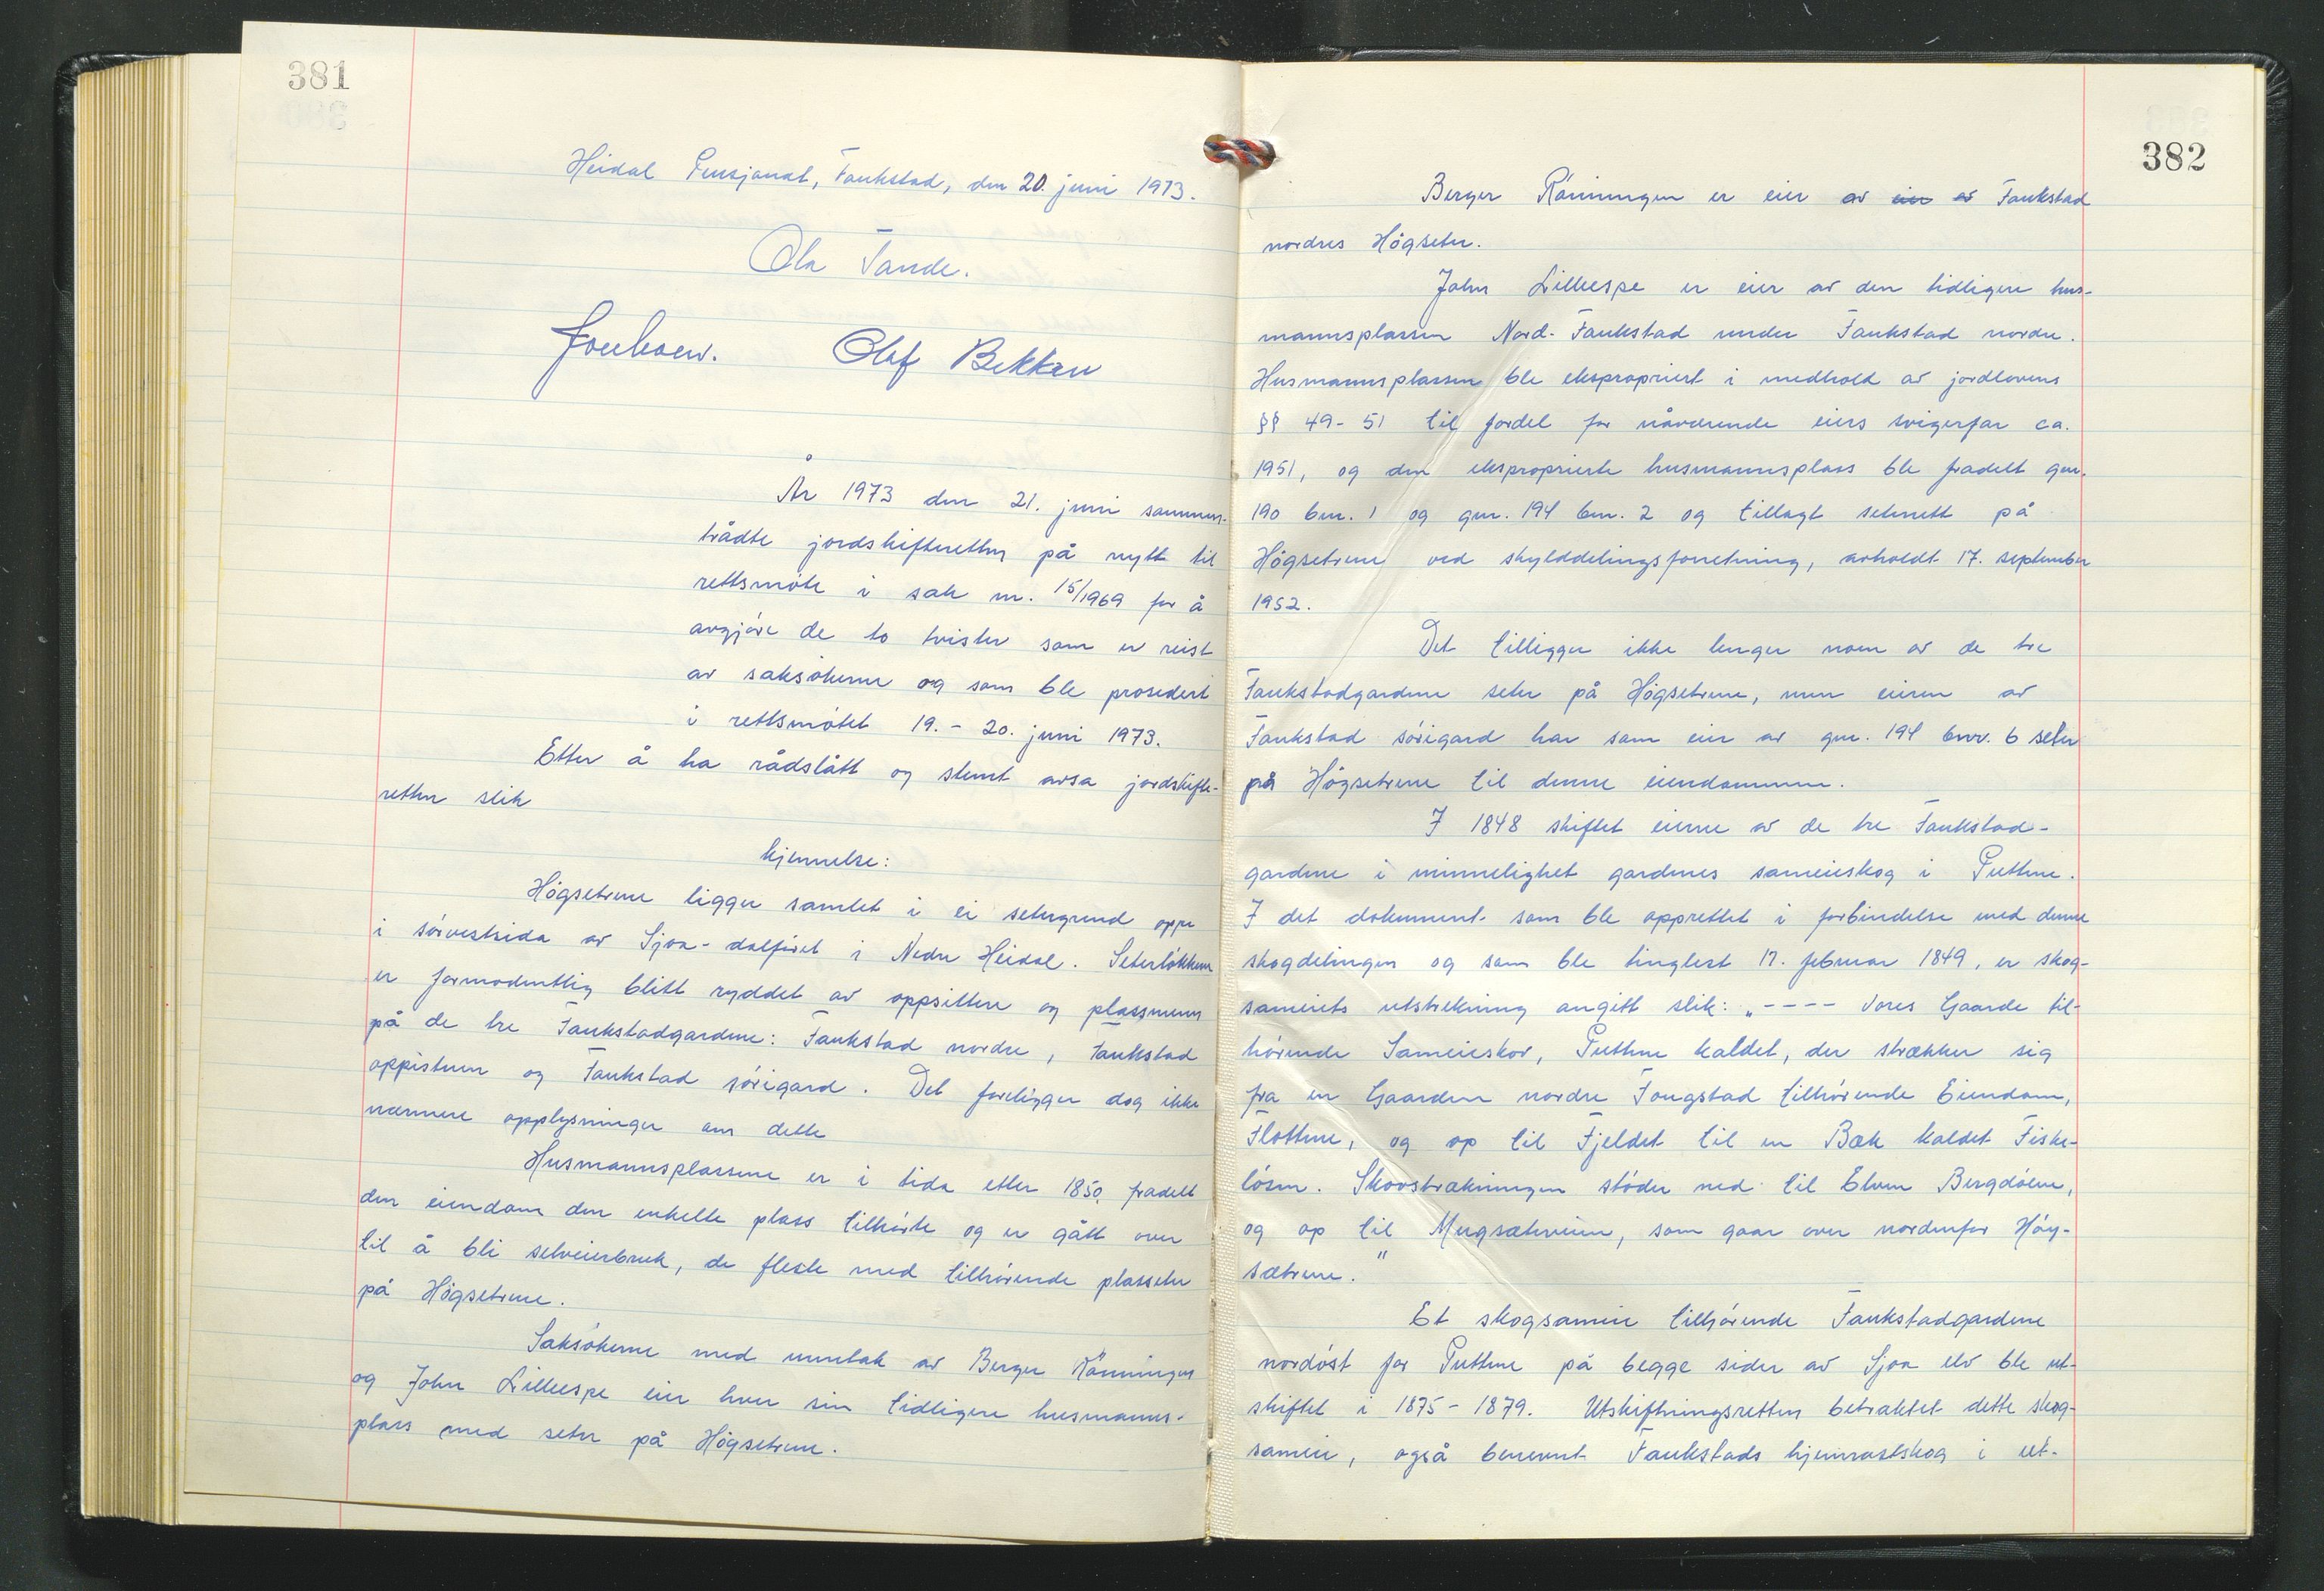 381
Heidal Pensjonat, Faukstad, den 20. juni 1973.
Ola Tande.
Olaf Bekken
År 1973 den 21. juni sammen-
trådte jordskifteretten på nytt til
rettsmöte i sak nr. 15/1969 for å
avgjöre de to tvister som er reist
av saksökerne og som ble prosedert
i rettsmötet 19. - 20. juni 1973.
Etter å ha rådslått og stemt avsa jordskifte-
retten slik
kjennelse:
Högsetrene ligger samlet i ei setergrend oppe
i sörvestsida av Sjoa-dalföret i Nedre Heidal. Seterlökkene
er formodentlig blitt ryddet av oppsittere og plassmenn
på de tre Faukstadgardene: Faukstad nordre, Faukstad
oppistuen og Faukstad sörigard. Det foreligger dog ikke
nærmere opplysninger om dette
Husmannsplassene er i tida etter 1850 fradelt
den eiendom den enkelte plass tilhörte og er gått over
til å bli selveierbruk, de fleste med tilhörende plasseter
på Högsetrene.
Saksökerne med unntak av Berger Rönningen
og John Lilleespe eier hver sin tidligere husmanns-
plass med seter på Högsetrene.
382
Berger Rönningen er eier av eier av Faukstad
nordres Högseter.
John Lilleespe er eier av den tidligere hus-
mannsplassen Nord-Faukstad under Faukstad nordre.
Husmannsplassen ble ekspropriert i medhold av jordlovens
§§ 49-51 til fordel for nåværende eiers svigerfar ca.
1951, og den eksproprierte husmannsplass ble fradelt gnr.
190 bnr. 1 og gnr. 194 bnr. 2 og tillagt seterrett på
Högsetrene ved skylddelingsforretning, avholdt 17. september
1952.
Det tilligger ikke lenger noen av de tre
Faukstadgardene seter på Högsetrene, men eieren av
Faukstad sörigard har som eier av gnr. 194 bnr. 6 seter
på Högsetrene til denne eiendommen.
I 1848 skiftet eierne av de tre Faukstad-
gardene i minnelighet gardenes sameieskog i Puttene.
I det dokument som ble opprettet i forbindelse med denne
skogdelingen og som ble tinglest 17. februar 1849, er skog-
sameiets utstrekning angitt slik: „---- vores Gaarde til-
hörende Sameieskov, Puttene kaldet, der strækker sig
fra en Gaarden nordre Fougstad tilhörende Eiendom,
Flottene, og op til Fjeldet til en Bæk kaldet Fiske-
lösen. Skovstrækningen stöder ned til Elven Bergdölene,
og op til Mugsæterveien, som gaar over nordenfor Höy-
sætrene."
Et skogsameie tilhörende Faukstadgardene
nordöst for Puttene på begge sider av Sjoa elv ble ut-
skiftet i 1875-1879. Utskiftningsretten betraktet dette skog-
sameie, også benevnt Faukstads hjemrastskog i ut-